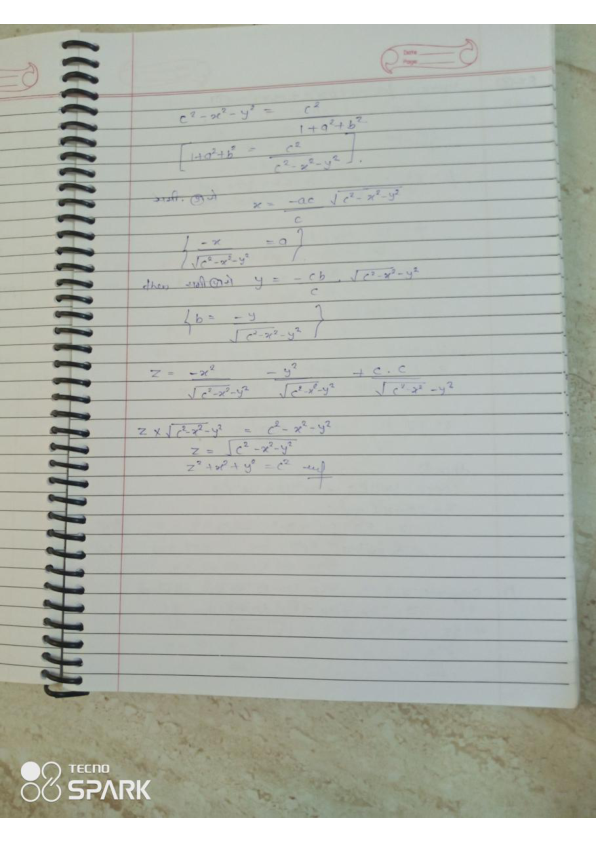 Name
Page
c² - x² - y² = c² / (1 + a² + b²)
[1 + a² + b² = c² / (c² - x² - y²)].
x = -ac / c √(c² - x² - y²)
{-x / √(c² - x² - y²) = a}
y = -cb / c √(c² - x² - y²)
{b = -y / √(c² - x² - y²)}
z = -x² / √(c² - x² - y²) - y² / √(c² - x² - y²) + c · c / √(c² - x² - y²)
z × √(c² - x² - y²) = c² - x² - y²
z = √(c² - x² - y²)
z² + x² + y² = c²
TECNO
SPARK